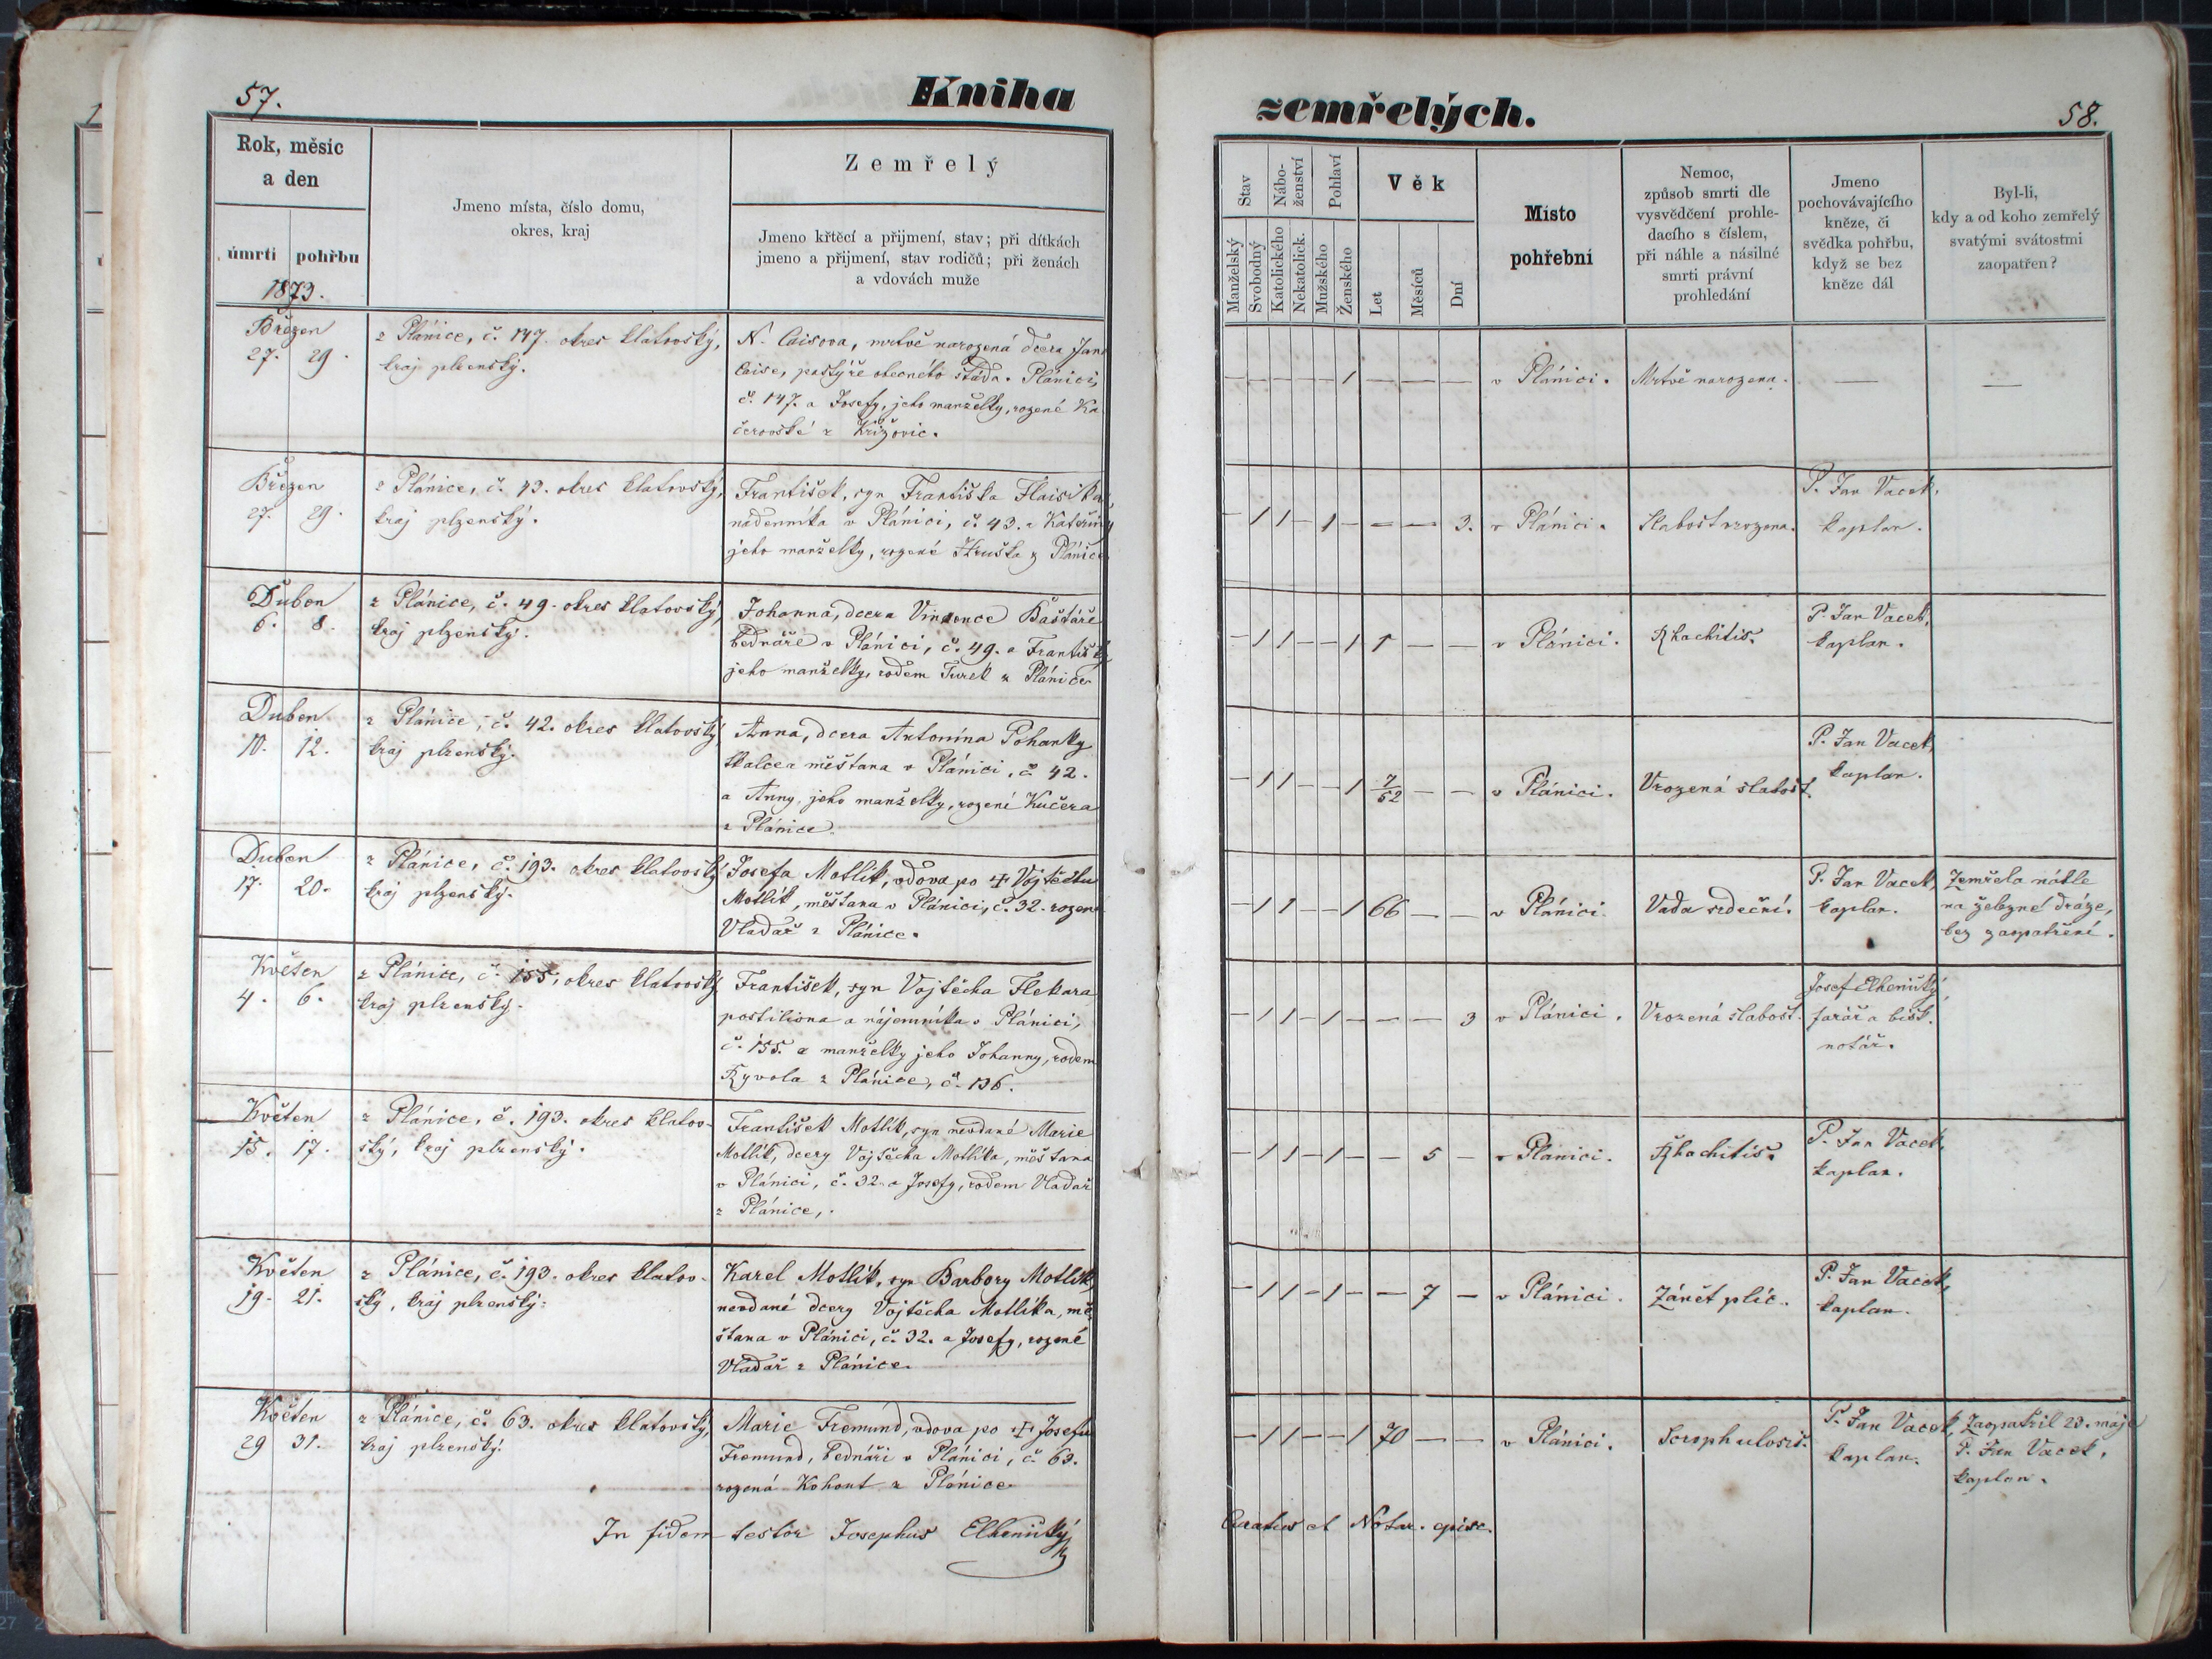 57.
Kniha
Rok, měsíc
a den
úmrtí pohřbu
1873.
Jmeno místa, číslo domu,
okres, kraj
Zemřelý
Jmeno křtěcí a přijmení, stav; při dítkách
jmeno a přijmení, stav rodičů; při ženách
a vdovách muže
Březen
27. 29.
z Plánice, č. 147. okres klatovský,
kraj plzenský.
N. Caisova, mrtvě narozená dcera Jana
Caise, pastýře obecného stáda v Plánici,
č. 147. a Josefy, jeho manželky, rozené Ka
čerovské z Křižovic.
Březen
27. 29.
z Plánice, č. 43. okres klatovský,
kraj plzenský.
František, syn Františka
nádenníka v Plánici, č. 43. a Kateřiny
jeho manželky, rozené Hruška z Plánice
Duben
6. 8.
z Plánice, č. 49. okres klatovský,
kraj plzenský.
Johanna, dcera Vincence Baštáře
bednáře v Plánici, č. 49. a Františky
jeho manželky, rodem Turek z Plánice
Duben
10. 12.
z Plánice, č. 42. okres klatovský,
kraj plzenský.
Anna, dcera Antonína Pohanky
tkalce a měštana v Plánici, č. 42.
a Anny, jeho manželky, rozené Kučera
z Plánice.
Duben
17. 20.
z Plánice, č. 193. okres klatovský
kraj plzenský.
Josefa Motlík, vdova po † Vojtěchu
Motlík, měštana v Plánici, č. 32. rozená
Vladař z Plánice.
Květen
4. 6.
z Plánice, č. 155, okres klatovský
kraj plzenský.
František, syn Vojtěcha Flekara
postiliona a nájemníka v Plánici,
č. 155. a manželky jeho Johanny, rodem
Ryvola z Plánice, č. 136.
Květen
15. 17.
z Plánice, č. 193. okres klatov-
ský, kraj plzenský.
František Motlík, syn nevdané Marie
Motlík, dcery Vojtěcha Motlíka, měštana
v Plánici, č. 32. a Josefy, rodem Vladař
z Plánice,.
Květen
19. 21.
z Plánice, č. 193. okres klatov-
ský, kraj plzenský.
Karel Motlík, syn Barbory Motlík,
nevdané dcery Vojtěcha Motlíka, mě-
štana v Plánici, č. 32. a Josefy, rozené
Vladař z Plánice.
Květen
29 31.
z Plánice, č. 63. okres klatovský,
kraj plzenský.
Marie Fremund, vdova po † Josefu
Fremund, bednáři v Plánici, č. 63.
rozená Kohout z Plánice.
In fidem testor Josephus Elhenický
zemřelých.
58.
Stav
Nábo-
ženství
Pohlaví
Věk
Manželský
Svobodný
Katolického
Nekatolick.
Mužského
Ženského
Let
Měsíců
Dní
Místo
pohřební
Nemoc,
způsob smrti dle
vysvědčení prohle-
dacího s číslem,
při náhle a násilné
smrti právní
prohledání
Jmeno
pochovávajícího
kněze, či
svědka pohřbu,
když se bez
kněze dál
Byl-li,
kdy a od koho zemřelý
svatými svátostmi
zaopatřen?
– – – – – 1 – – – v Plánici. Mrtvě narozena. — —
– 1 1 – 1 – – – 3. v Plánici. Slabost vrozena.
P. Jan Vacek,
kaplan.
– 1 1 – – 1 1 – – v Plánici. Rhachitis.
P. Jan Vacek,
kaplan.
– 1 1 – – 1 7/52 – – v Plánici. Vrozená slabost.
P. Jan Vacek,
kaplan.
– 1 1 – – 1 66 – – v Plánici. Vada srdeční.
P. Jan Vacek,
kaplan.
Zemřela náhle
na železné dráze,
bez zaopatření.
– 1 1 – 1 – – – 3 v Plánici. Vrozená slabost.
Josef Elhenický
farář a bisk.
notář.
– 1 1 – 1 – – 5 – v Plánici. Rhachitis.
P. Jan Vacek,
kaplan.
– 1 1 – 1 – – 7 – v Plánici. Zánět plic.
P. Jan Vacek,
kaplan.
– 1 1 – – 1 70 – – v Plánici. Scrophulosis.
P. Jan Vacek,
kaplan.
Zaopatřil 23. máje
P. Jan Vacek,
kaplan.
Curatus et Notar. episc.